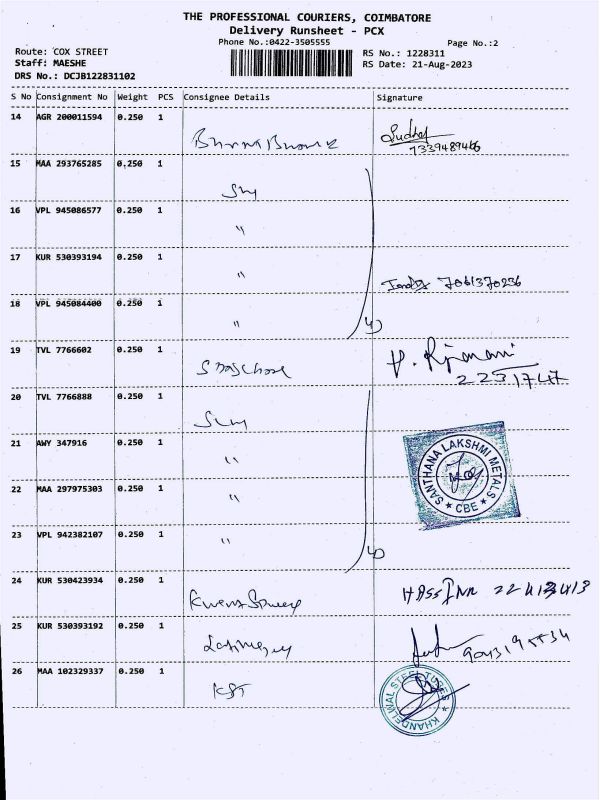 THE PROFESSIONAL COURIERS, COIMBATORE
Delivery Runsheet - PCX
Phone No.:0422-3505555
Page No.:2
Route: COX STREET
RS No.: 1228311
Staff: MAESHE
RS Date: 21-Aug-2023
DRS No.: DCJB122831102
S No Consignment No Weight PCS Consignee Details Signature
14 AGR 200011594 0.250 1
7339489466
15 MAA 293765285 0.250 1
16 VPL 945086577 0.250 1
"
17 KUR 530393194 0.250 1
"
7061370236
18 VPL 945084400 0.250 1
" 4)
19 TVL 7766602 0.250 1
2231747
20 TVL 7766888 0.250 1
21 AWY 347916 0.250 1
"
SANTHANA LAKSHMI METALS
★ CBE ★
22 MAA 297975303 0.250 1
"
23 VPL 942382107 0.250 1
"
24 KUR 530423934 0.250 1
25 KUR 530393192 0.250 1
26 MAA 102329337 0.250 1
KST
KHANDELWAL STEEL TUBES